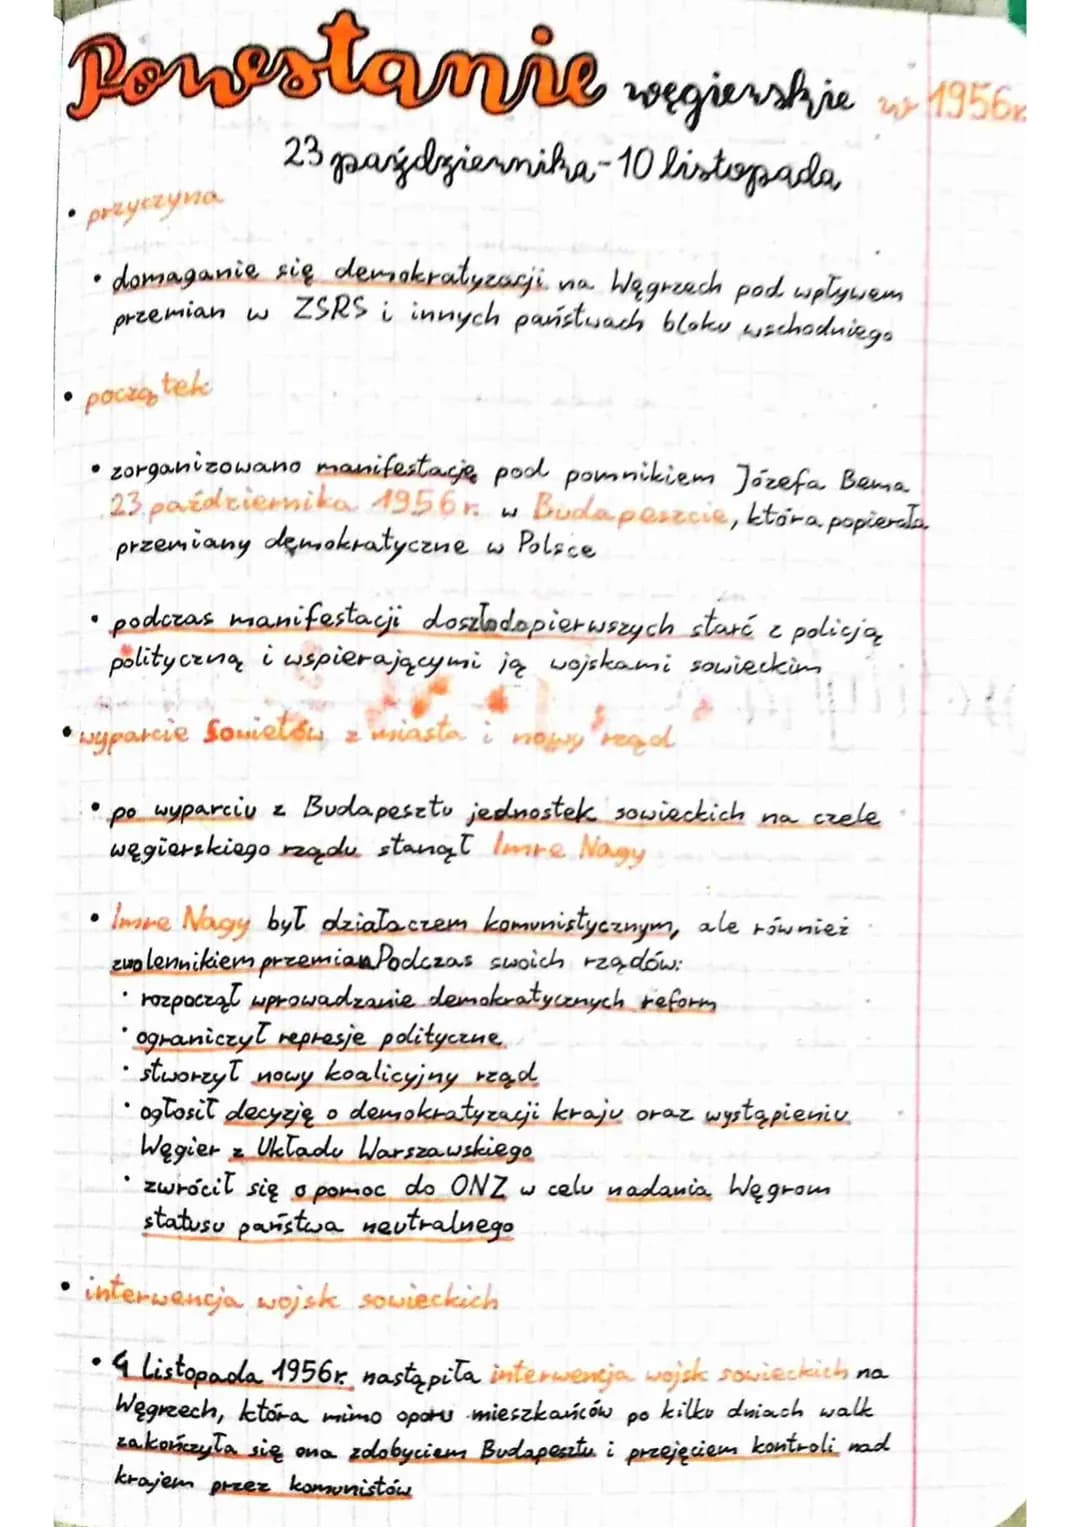 Powstanie węgierskie w 1956r.
23 października-10 listopada
• przyczyna
• domaganie się demokratyzacji na Węgrzech pod wpływem
przemian w ZSRS i innych państwach bloku wschodniego
• początek
• zorganizowano manifestację pod pomnikiem Józefa Bema
23 października 1956r. w Budapeszcie, która popierała
przemiany demokratyczne w Polsce
• podczas manifestacji doszło do pierwszych starć z policją
polityczną i wspierającymi ją wojskami sowieckim
• wyparcie Sowietów z miasta i nowy rząd
• po wyparciu z Budapesztu jednostek sowieckich na czele
węgierskiego rządu stanął Imre Nagy
• Imre Nagy był działaczem komunistycznym, ale również
zwolennikiem przemian Podczas swoich rządów:
• rozpoczął wprowadzanie demokratycznych reform
• ograniczył represje polityczne
• stworzył nowy koalicyjny rząd
• ogłosił decyzję o demokratyzacji kraju oraz wystąpieniu
Węgier z Układu Warszawskiego
• zwrócił się o pomoc do ONZ w celu nadania Węgrom
statusu państwa neutralnego
• interwencja wojsk sowieckich
• 4 Listopada 1956r. nastąpiła interwencja wojsk sowieckich na
Węgrzech, która mimo oporu mieszkańców po kilku dniach walk
zakończyła się ona zdobyciem Budapesztu i przejęciem kontroli nad
krajem przez komunistów